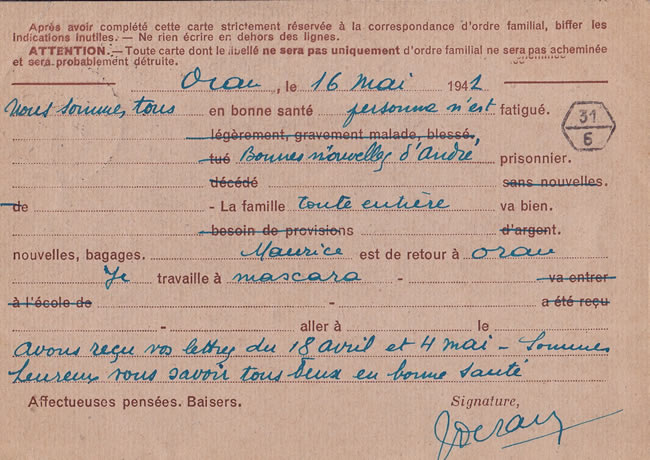 Après avoir complété cette carte strictement réservée à la correspondance d'ordre familial, biffer les
indications inutiles. — Ne rien écrire en dehors des lignes.
ATTENTION. — Toute carte dont le libellé ne sera pas uniquement d'ordre familial ne sera pas acheminée
et sera probablement détruite.
Oran, le 16 mai 1941
Nous sommes tous en bonne santé personne n'est fatigué.
légèrement, gravement malade, blessé.
31
5
tué Bonnes nouvelles d'André prisonnier.
décédé sans nouvelles.
de - La famille toute entière va bien.
besoin de provisions d'argent.
nouvelles, bagages. Maurice est de retour à oran
Je travaille à mascara - va entrer
à l'école de - a été reçu
- aller à le
avons reçu vos lettres du 18 avril et 4 mai - Sommes
heureux vous savoir tous deux en bonne santé
Affectueuses pensées. Baisers. Signature,